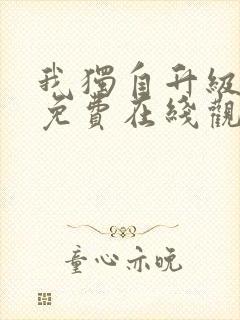 我獨自升級
免費在綫觀
童心亦晚